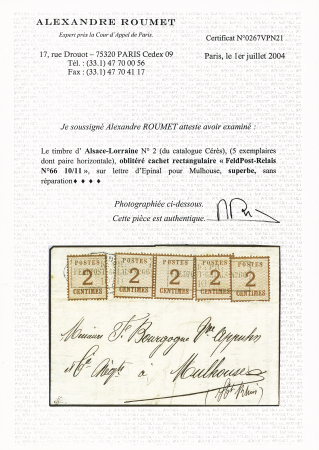 ALEXANDRE ROUMET
Expert près la Cour d'Appel de Paris.
Certificat N°0267VPN21
17, rue Drouot – 75320 PARIS Cedex 09
Paris, le 1er juillet 2004
Tél. : (33.1) 47 70 00 56
Fax : (33.1) 47 70 41 17
Je soussigné Alexandre ROUMET atteste avoir examiné :
Le timbre d' Alsace-Lorraine N° 2 (du catalogue Cérès), (5 exemplaires
dont paire horizontale), oblitéré cachet rectangulaire « FeldPost-Relais
N°66 10/11 », sur lettre d'Epinal pour Mulhouse, superbe, sans
réparation♦ ♦ ♦ ♦
Photographiée ci-dessous.
Cette pièce est authentique.
POSTES POSTES POSTES POSTES POSTES
2 2 2 2 2
CENTIMES CENTIMES CENTIMES CENTIMES CENTIMES
Bourgogne
à Mulhouse